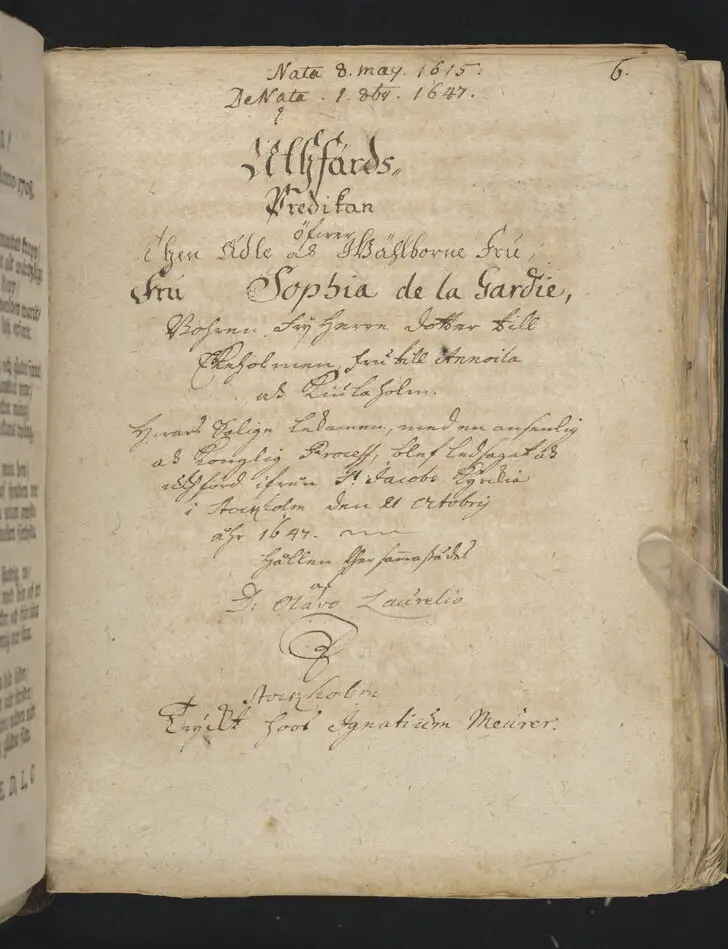 Nata 8. may. 1615.
6.
DeNata. 1. 8br. 1647.
Uthfärds,,
Predikan
öfwer
Then Ädle och Wählborne Fru,
Fru Sophia de la Gardie,
Bohren Fry Herre dotter till
Ekeholmen, fru till Annoila
och Kiulaholm.
Hwars Salige Lekamen, med en ansenlig
och Konglig Process, blef ledsagat och
uthförd ifrån St Jacobs Kyrckia
i Stockholm den 21 Octobris
åhr 1647.
Hållen ther sammastädes
af
D: Olavo Laurelio
Stockholm
Tryckt hoos Ignatium Meurer.
Anno 1708.
E, D, L, G